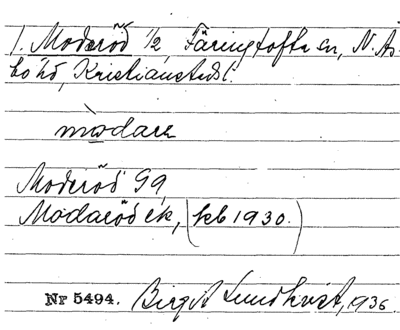 1. Moderöd 1/2, Färingtofta sn, N. Ås-
bo hd, Kristianstads l.
mòdare
Moderöd GG,
Modaröd ek, (kb 1930.)
Nr 5494. Birgit Lundkvist, 1936